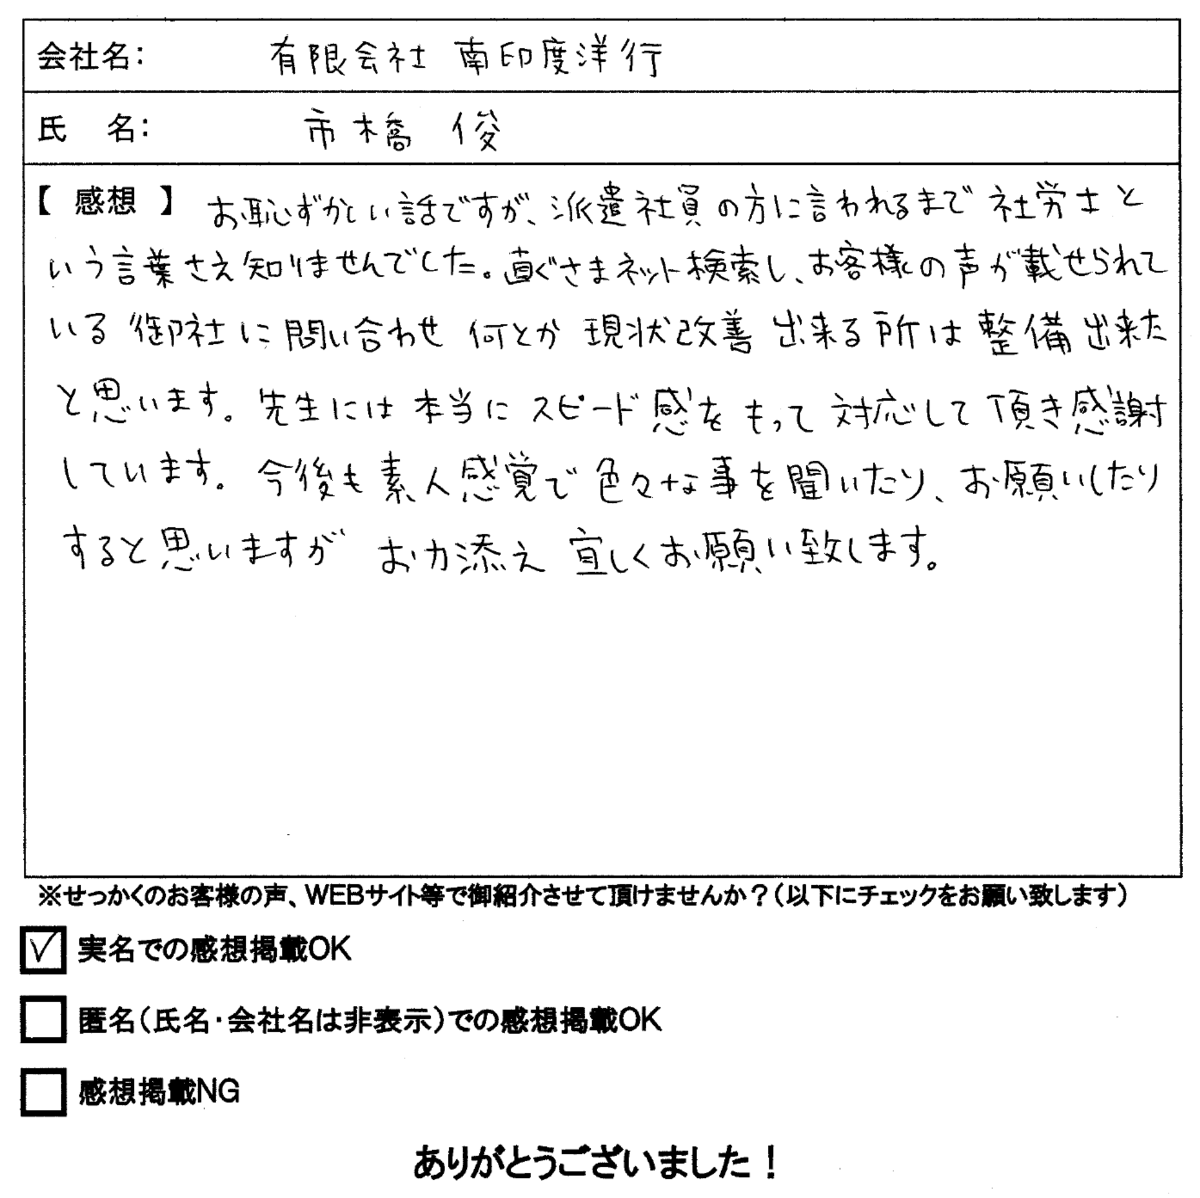 会社名: 有限会社 南印度洋行
氏 名: 市橋 俊
【 感想 】 お恥ずかしい話ですが、派遣社員の方に言われるまで 社労士と
いう言葉さえ知りませんでした。直ぐさまネット検索し、お客様の声が載せられて
いる 御社に問い合わせ 何とか 現状改善 出来る所は 整備出来た
と思います。先生には本当にスピード感をもって 対応して頂き感謝
しています。今後も素人感覚で色々な事を聞いたり、お願いしたり
すると思いますが お力添え 宜しくお願い致します。
※せっかくのお客様の声、WEBサイト等で御紹介させて頂けませんか？（以下にチェックをお願い致します）
☑ 実名での感想掲載OK
☐ 匿名（氏名・会社名は非表示）での感想掲載OK
☐ 感想掲載NG
ありがとうございました！